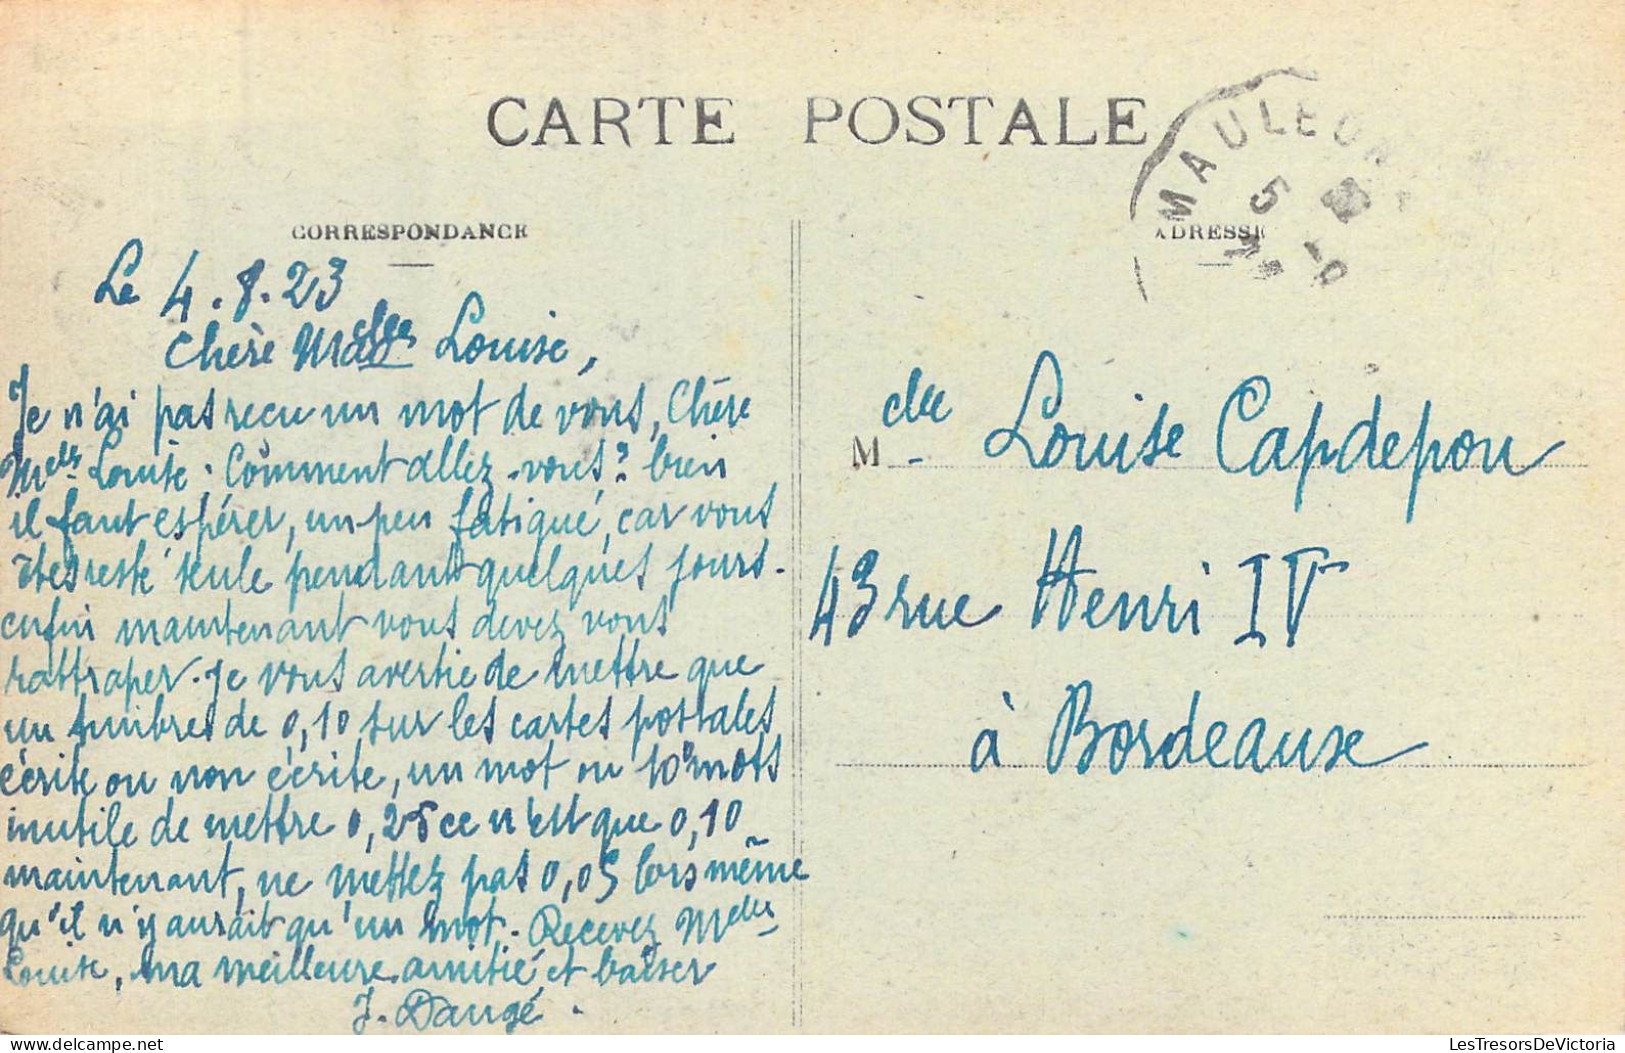 CARTE POSTALE
MAULEON
5
CORRESPONDANCE
ADRESSE
Le 4.8.23
Chère Madelle Louise,
Je n'ai pas reçu un mot de vous, Chère
Melle Louise. Comment allez-vous? bien
il faut espérer, un peu fatigué, car vous
êtes resté seule pendant quelques jours.
enfin maintenant vous devez vous
rattraper. je vous avertie de mettre que
un timbres de 0,10 sur les cartes postales
écrite ou non écrite, un mot ou 10 mots
inutile de mettre 0,25 ce n'est que 0,10
maintenant, ne mettez pas 0,05 lors même
qu'il n'y aurait qu'un mot. Recevez Melle
Louise, ma meilleure amitié, et baiser
J. Daugé.
Melle Louise Capdepou
43 rue Henri IV
à Bordeause
delcampe.net
LesTresorsDeVictoria